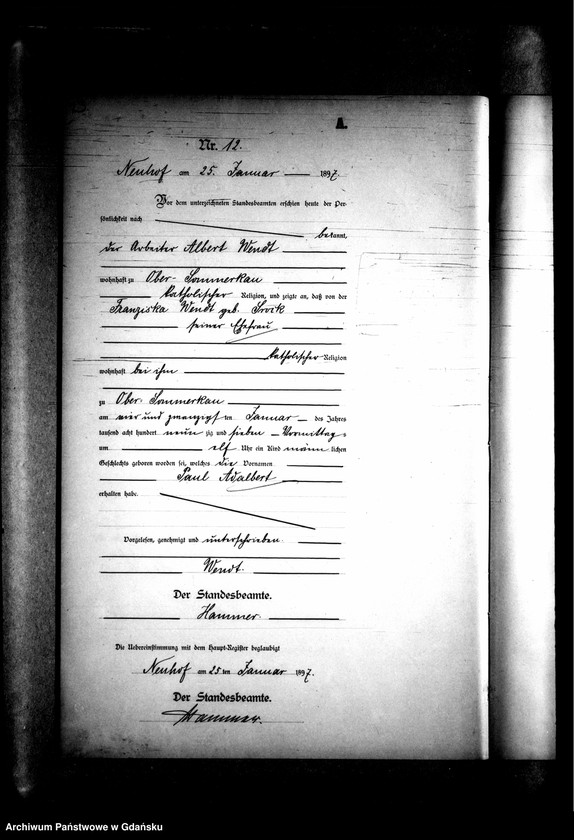 A.
Nr. 12.
Neuhof am 25. Januar 1897.
Vor dem unterzeichneten Standesbeamten erschien heute der Per-
sönlichkeit nach
bekannt,
der Arbeiter Albert Wendt
wohnhaft zu Ober-Sommerkau
katholischer Religion, und zeigte an, daß von der
Franziska Wendt geb.
seiner Ehefrau
katholischer Religion
wohnhaft bei ihm
zu Ober-Sommerkau
am vier und zwanzigsten Januar des Jahres
tausend acht hundert neunzig und sieben Vormittags
um elf Uhr ein Kind männlichen
Geschlechts geboren worden sei, welches die Vornamen
Paul Adalbert
erhalten habe.
Vorgelesen, genehmigt und unterschrieben
Wendt.
Der Standesbeamte.
Hammer
Die Uebereinstimmung mit dem Haupt-Register beglaubigt
Neuhof am 25ten Januar 1897.
Der Standesbeamte.
Hammer.
Archiwum Państwowe w Gdańsku